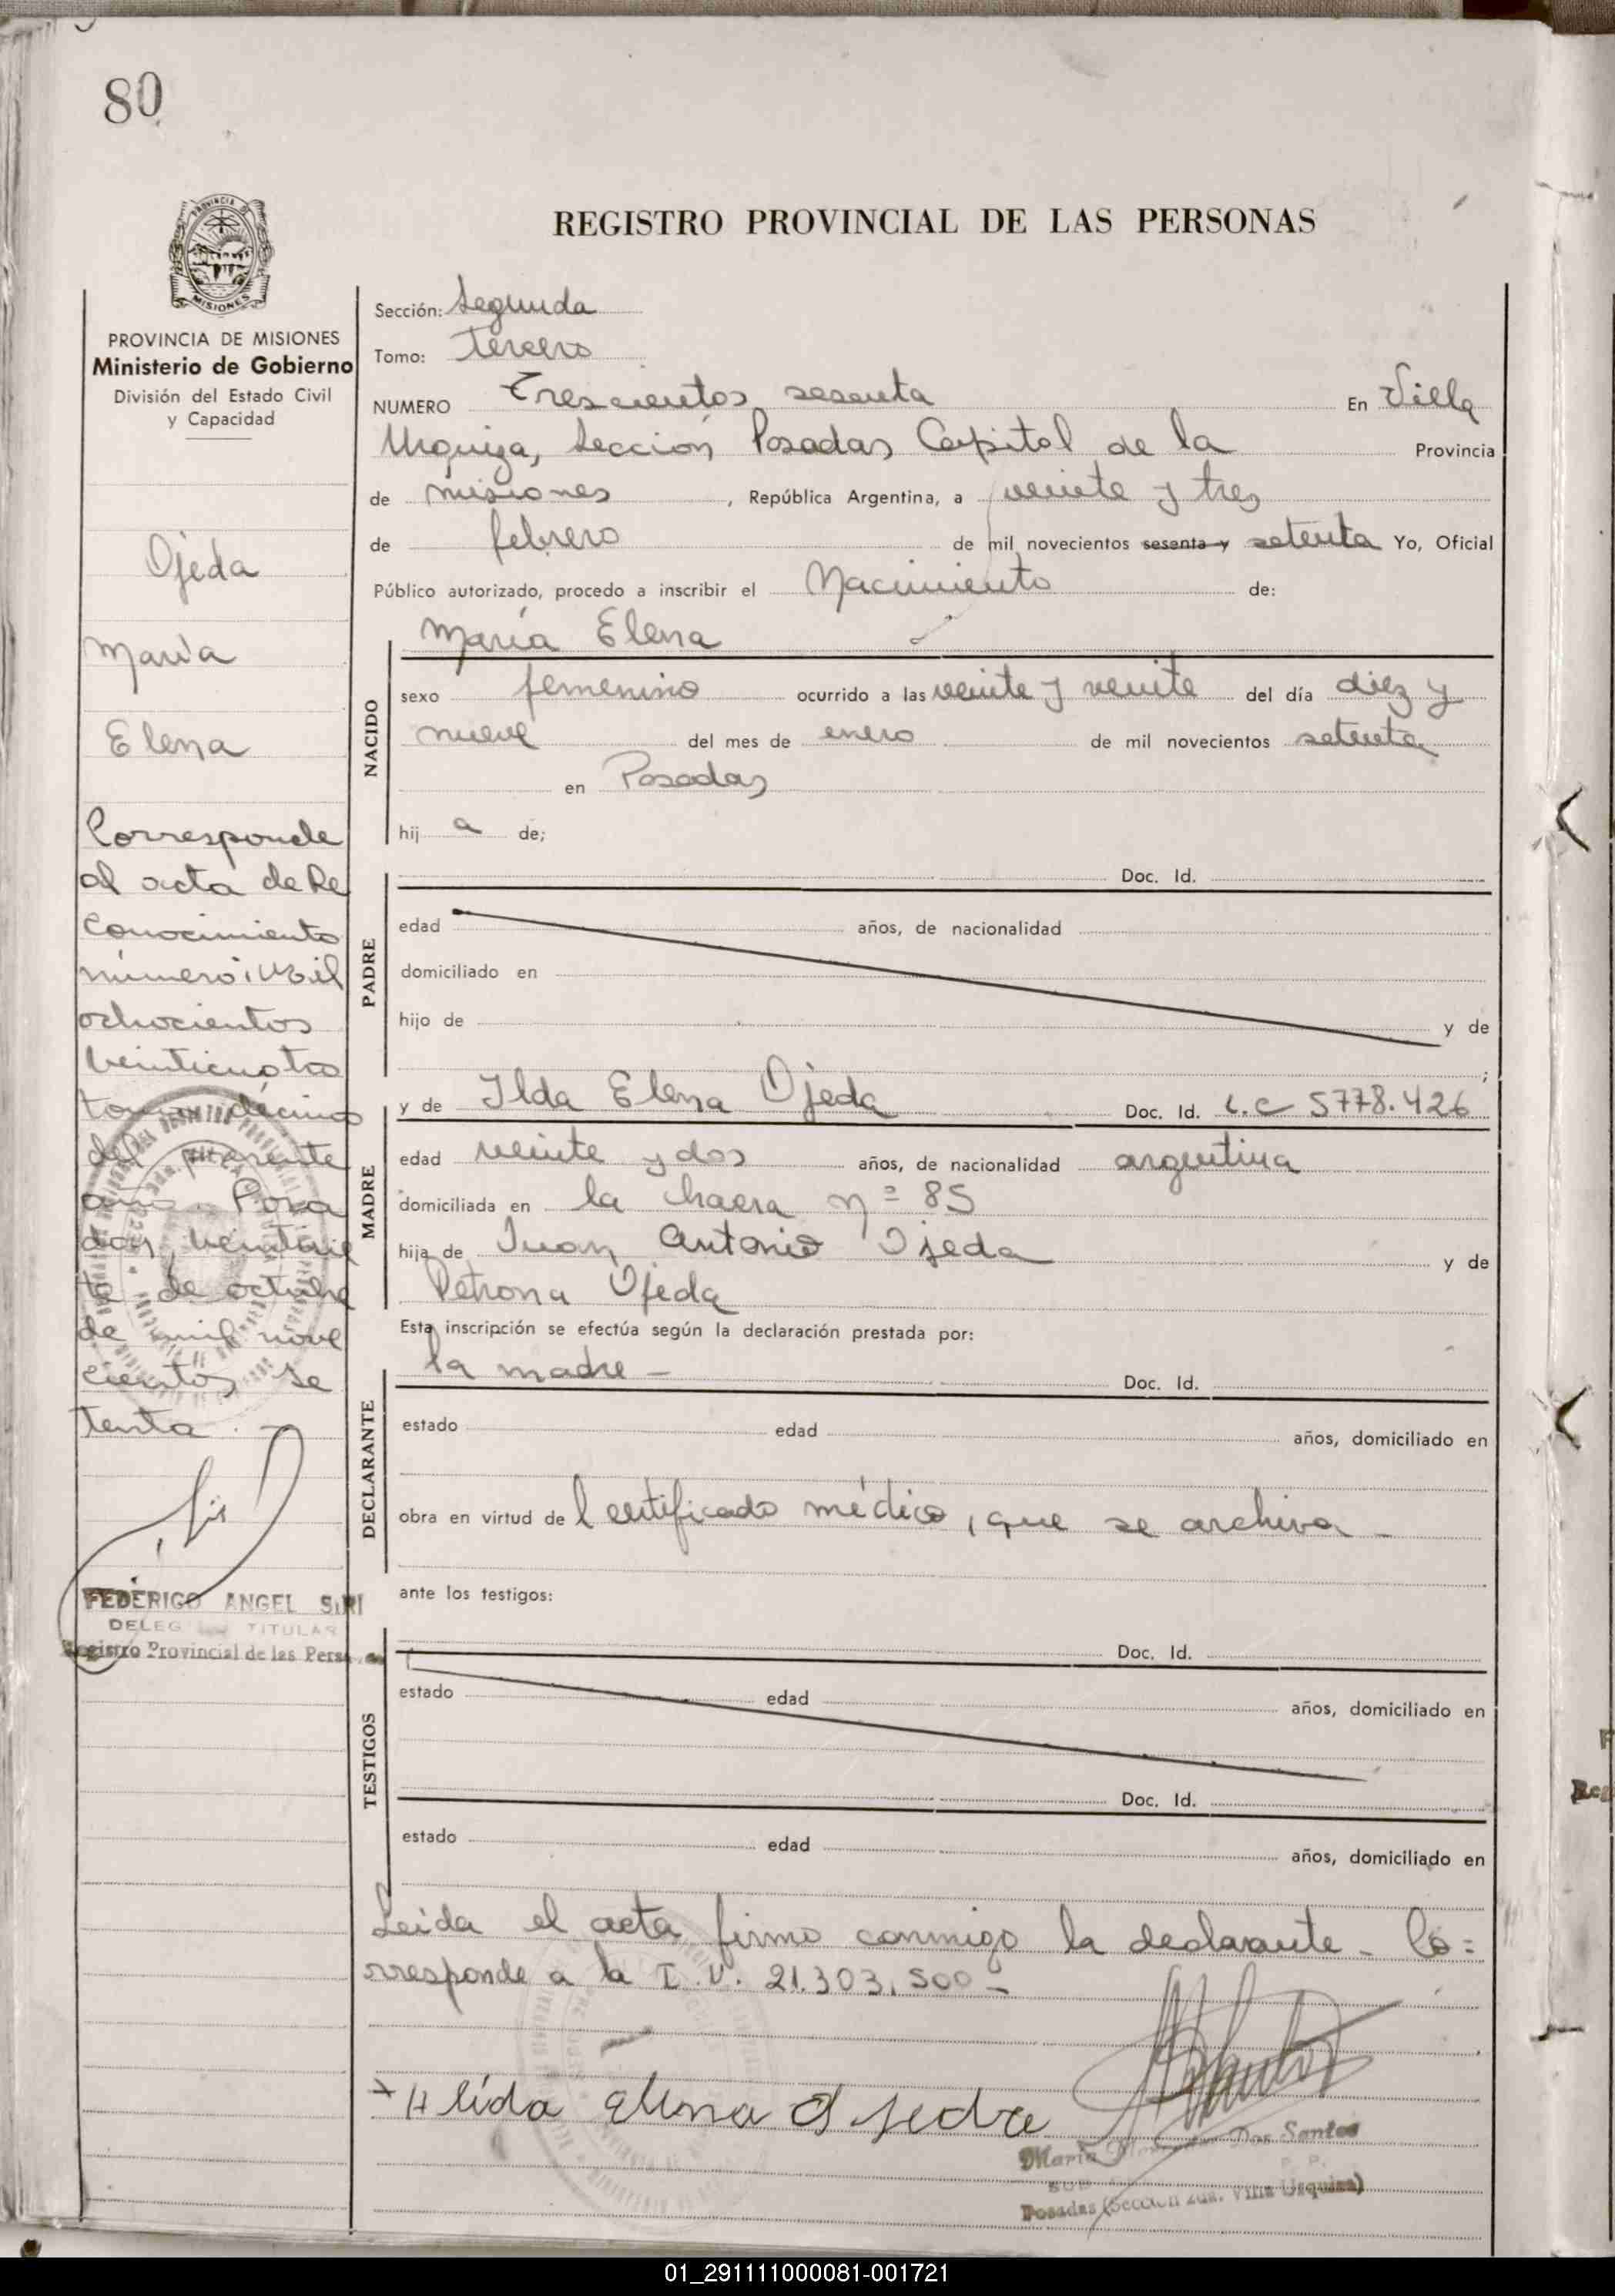 80
PROVINCIA DE
MISIONES
PROVINCIA DE MISIONES
Ministerio de Gobierno
División del Estado Civil
y Capacidad
Ojeda
María
Elena
Corresponde
al acta de Re
conocimiento
número: Mil
ochocientos
veinticuatro
tomo décimo
del presente
año. Posa
das, veintisie
te de octubre
de mil nove
cientos se
tenta.
FEDERICO ANGEL SIRI
DELEG TITULAR
Registro Provincial de las Pers
REGISTRO PROVINCIAL DE LAS PERSONAS
Sección: Segunda
Tomo: Tercero
NUMERO Trescientos sesenta En Villa
Urquiza, Sección Posadas Capital de la Provincia
de misiones, República Argentina, a veinte y tres
de febrero de mil novecientos sesenta y setenta Yo, Oficial
Público autorizado, procedo a inscribir el Nacimiento de:
María Elena
NACIDO
sexo femenino ocurrido a las veinte y veinte del día diez y
nueve del mes de enero de mil novecientos setenta
en Posadas
hij a de;
PADRE
Doc. Id.
edad años, de nacionalidad
domiciliado en
hijo de y de
;
MADRE
y de Ilda Elena Ojeda Doc. Id. L.C 5778.426
edad veinte y dos años, de nacionalidad argentina
domiciliada en la chacra nº 85
hija de Juan Antonio Ojeda y de
Petrona Ojeda
Esta inscripción se efectúa según la declaración prestada por:
DECLARANTE
la madre - Doc. Id.
estado edad años, domiciliado en
obra en virtud de Certificado médico, que se archiva -
ante los testigos:
TESTIGOS
Doc. Id.
estado edad años, domiciliado en
Doc. Id.
estado edad años, domiciliado en
Leída el acta firmo conmigo la declarante - Co=
rresponde a la I.U. 21.303.500 -
Hlida Elena Ojeda
María Dos Santos
SUB
Posadas (Sección 2da. Villa Urquiza)
01_291111000081-001721